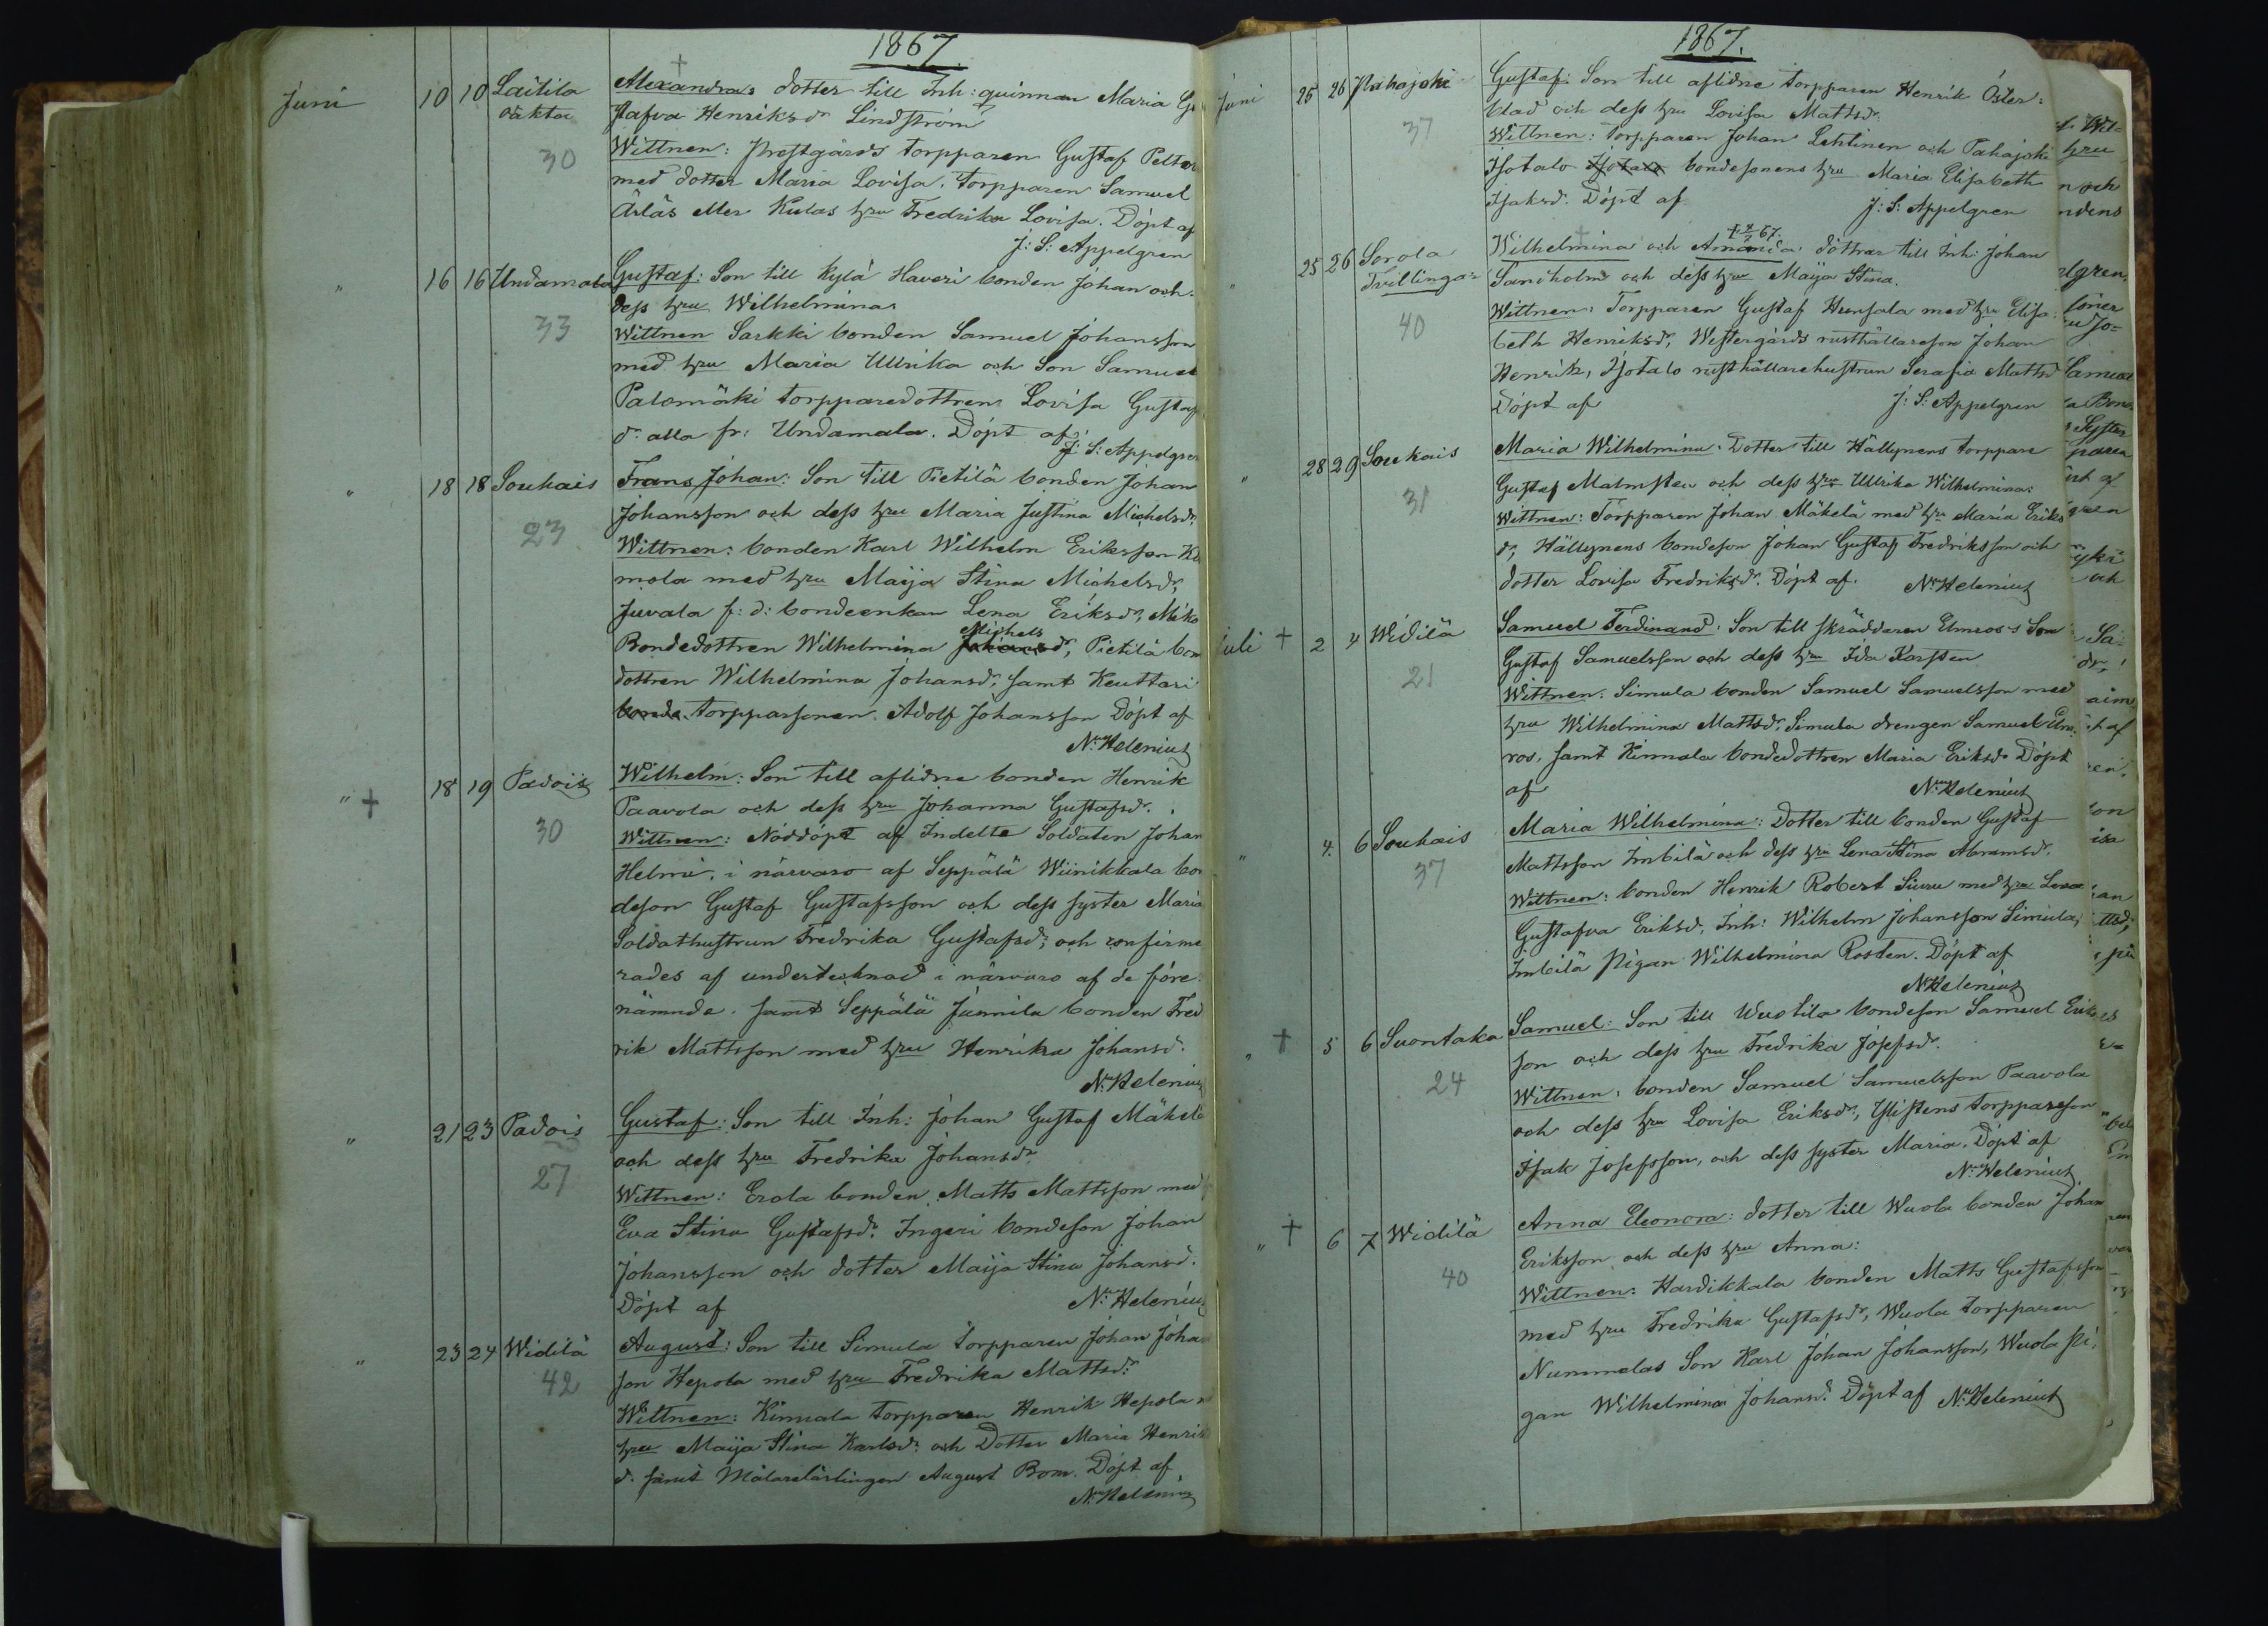 1867.
Juni 10 10 Laitila Alexandra: dotter till Inh: quinnan Maria Gu
oäkta stafva Henriksdr Lindström
30 Wittnen: Prestgårds torpparen Gustaf Petter
med dotter Maria Lovisa. Torpparen Samuel
Ärläs eller Kulas hru Fredrika Lovisa. Döpt af
J: S: Appelgren
" 16 16 Undamala Gustaf: Son till Kylä Haveri bonden Johan och
dess hru Wilhelmina
33 Wittnen Sarkki bonden Samuel Johansson
med hru Maria Ullrika och Son Samuel
Palomäki torpparedottren Lovisa Gustaf
dr alla fr: Undamala. Döpt af
J: S: Appelgren
" 18 18 Soukais Frans Johan: Son till Pietilä bonden Johan
Johansson och dess hru Maria Justina Michelsdr
23 Wittnen: bonden Karl Wilhelm Eriksson
mola med hru Maija Stina Michelsdr,
Juvala f: d: bondeenkan Lena Eriksdr, Miko
Michels
Bondedottren Wilhelmina Johansdr, Pietilä bon
dottren Wilhelmina Johansdr, samt Keuttari
bonde torpparsonen Adolf Johansson Döpt af
Ns Helenius
" † 18 19 Padois Wilhelm: Son till aflidne bonden Henrik
Paavola och dess hru Johanna Gustafsdr.
30 Wittnen: Nöddöpt af Indelte Soldaten Johan
Helmi, i närvaro af Seppälä Wiinikkala bon
deson Gustaf Gustafsson och dess syster Maria
Soldathustrun Fredrika Gustafsdr, och confirme
rades af undertecknad i närvaro af de före
nämnde. samt Seppälä Junnila bonden Fred
rik Mattsson med hru Henrika Johansd.
Ns Helenius
" 21 23 Padois Gustaf: Son till Inh: Johan Gustaf Mäkelä
och dess hru Fredrika Johansdr
27 Wittnen: Erola bonden Matts Mattsson med
Eva Stina Gustafsdr. Ingeri bondeson Johan
Johansson och dotter Maija Stina Johansd.
Döpt af Ns Helenius
" 23 24 Widilä August: Son till Simula torpparen Johan Johan
42 son Hepola med hru Fredrika Mattsdr
Wittnen: Kinnala torpparen Henrik Hepola m
hru Maija Stina Karlsdr och Dotter Maria Henrik
d. samt Målarelärlingen August Bom. Döpt af
Ns Helenius
1867.
Juni 25 26 Pahajoki Gustaf: Son till aflidne torpparen Henrik Öster=
blad och dess hru Lovisa Mattsdr
37 Wittnen: Torpparen Johan Lehtinen och Pahajoki
Isotalo Isotalo bondesonens hru Maria Elisabeth
Isaksd. Döpt af J: S: Appelgren
† 2/7 67.
" 25 26 Sorola Wilhelmina och Amanda döttrar till Inh: Johan
Tvillingar Sandholm och dess hru Maija Stina.
40 Wittnen: Torpparen Gustaf Hunsala med hru Elisa
beth Henriksdr, Westergårds rusthållareson Johan
Henrik, Isotalo rusthållarehustrun Serafia Mattsd
Döpt af J: S: Appelgren
" 28 29 Soukais Maria Wilhelmina: Dotter till Hällynens torppare
Gustaf Malmsten och dess hru Ullrika Wilhelmina
31 Wittnen: Torpparen Johan Mäkelä med hru Maria Eriks
dr, Hällynens bondeson Johan Gustaf Fredriksson och
dotter Lovisa Fredriksdr. Döpt af. Ns Helenius
Juli † 2 4 Widilä Samuel Ferdinand: Son till skräddaren Elmros's Son
Gustaf Samuelsson och dess hru Ida Karsten
21 Wittnen: Simula bonden Samuel Samuelsson med
hru Wilhelmina Mattsdr, Simula drengen Samuel Elm=
ros, samt Kinnala bondedottren Maria Eriksdr Döpt
af Ns Helenius
" 4. 6 Soukais Maria Wilhelmina: Dotter till bonden Gustaf
Mattsson Imbilä och dess hru Lena Stina Abramsdr.
37 Wittnen: bonden Henrik Robert Siuru med hru Lena
Gustafva Eriksd, Inh: Wilhelm Johansson Simula,
Imbilä Pigan Wilhelmina Rosten. Döpt af
Ns Helenius
" † 5 6 Suontaka Samuel: Son till Wuotila bondeson Samuel Eriks
son och dess hru Fredrika Josefsdr.
24 Wittnen: bonden Samuel Samuelsson Paavola
och dess hru Lovisa Eriksdr, torppareson
Isak Josefsson, och dess syster Maria. Döpt af
Ns Helenius
" † 6 7 Widilä Anna Eleonora: dotter till Wuola bonden Johan
Eriksson och dess hru Anna:
40 Wittnen: Hardikkala bonden Matts Gustafsson
med hru Fredrika Gustafsdr, Wuola torpparen
Nummelas Son Karl Johan Johansson, Wuola pi=
gan Wilhelmina Johansdr. Döpt af Ns Helenius